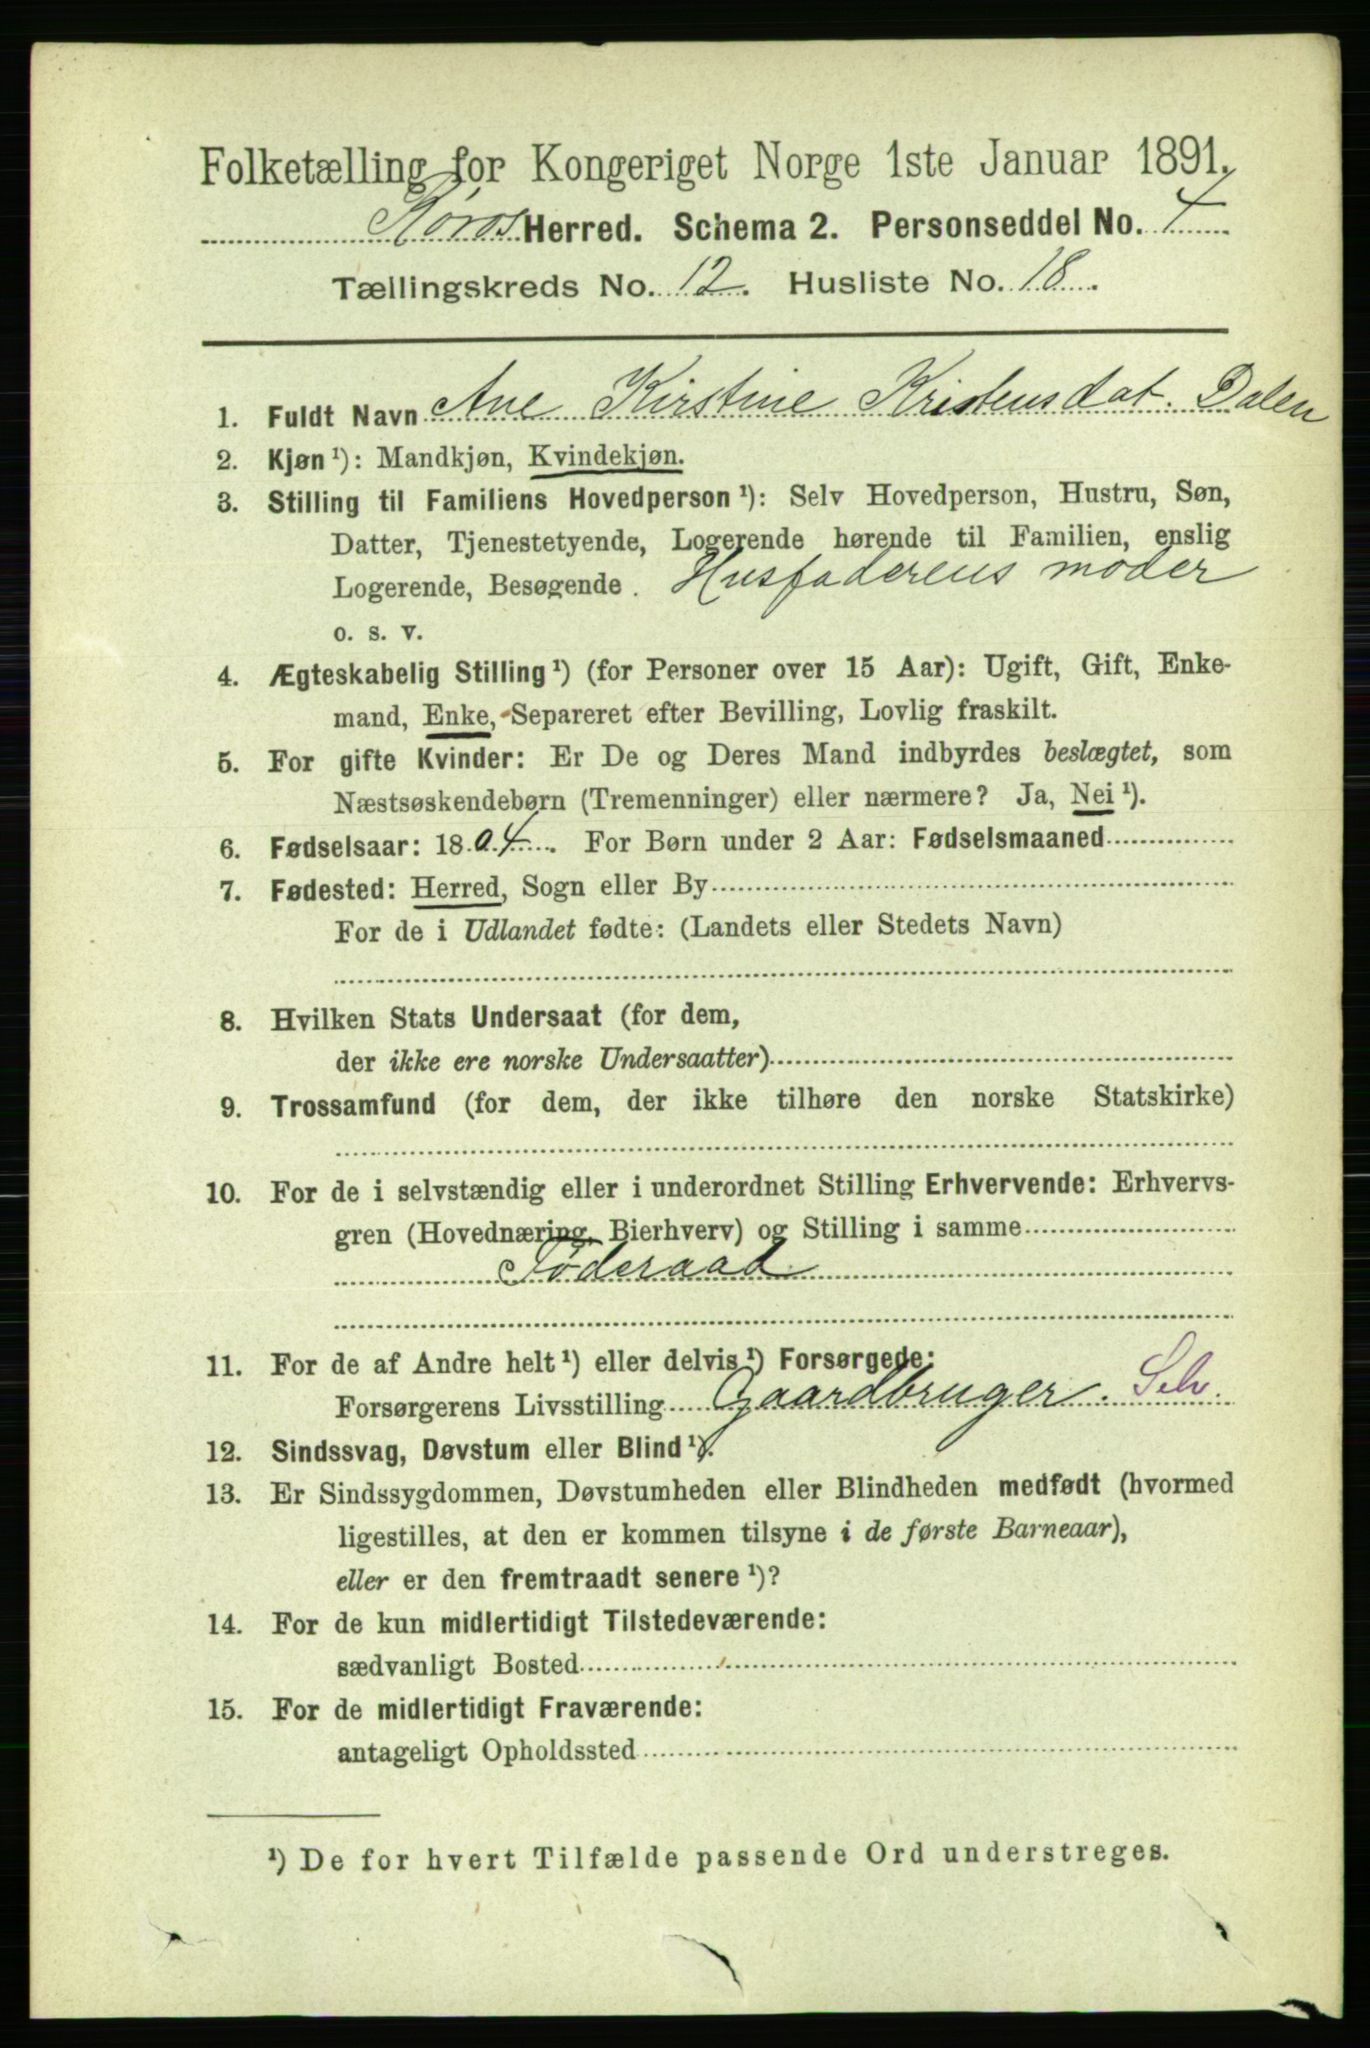 Folketælling for Kongeriget Norge 1ste Januar 1891.
Röros Herred. Schema 2. Personseddel No. 4
Tællingskreds No. 12. Husliste No. 18.
1. Fuldt Navn Ane Kirstine Kristensdat. Dalen
2. Kjøn ¹): Mandkjøn, Kvindekjøn.
3. Stilling til Familiens Hovedperson ¹): Selv Hovedperson, Hustru, Søn,
Datter, Tjenestetyende, Logerende hørende til Familien, enslig
Logerende, Besøgende. Husfaderens moder
o. s. v.
4. Ægteskabelig Stilling ¹) (for Personer over 15 Aar): Ugift, Gift, Enke-
mand, Enke, Separeret efter Bevilling, Lovlig fraskilt.
5. For gifte Kvinder: Er De og Deres Mand indbyrdes beslægtet, som
Næstsøskendebørn (Tremenninger) eller nærmere? Ja, Nei ¹).
6. Fødselsaar: 1804. For Børn under 2 Aar: Fødselsmaaned
7. Fødested: Herred, Sogn eller By
For de i Udlandet fødte: (Landets eller Stedets Navn)
8. Hvilken Stats Undersaat (for dem,
der ikke ere norske Undersaatter)
9. Trossamfund (for dem, der ikke tilhøre den norske Statskirke)
10. For de i selvstændig eller i underordnet Stilling Erhvervende: Erhvervs-
gren (Hovednæring, Bierhverv) og Stilling i samme
Föderaad
11. For de af Andre helt ¹) eller delvis ¹) Forsørgede:
Forsørgerens Livsstilling Gaardbruger. Selv.
12. Sindssvag, Døvstum eller Blind ¹).
13. Er Sindssygdommen, Døvstumheden eller Blindheden medfødt (hvormed
ligestilles, at den er kommen tilsyne i de første Barneaar),
eller er den fremtraadt senere ¹)?
14. For de kun midlertidigt Tilstedeværende:
sædvanligt Bosted
15. For de midlertidigt Fraværende:
antageligt Opholdssted
¹) De for hvert Tilfælde passende Ord understreges.